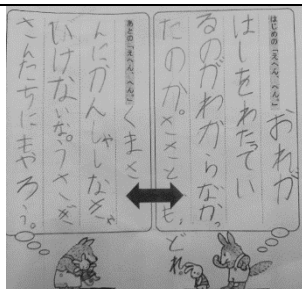 はじめの「えへん、へん。」
おれが
はしをわたってい
るのがわからなかっ
たのか。さとと
も、どれ
あとの「えへん、へん。」
くまさ
んにかんしゃしなきゃ
いけないな。うさぎ
さんたちにもやろう。